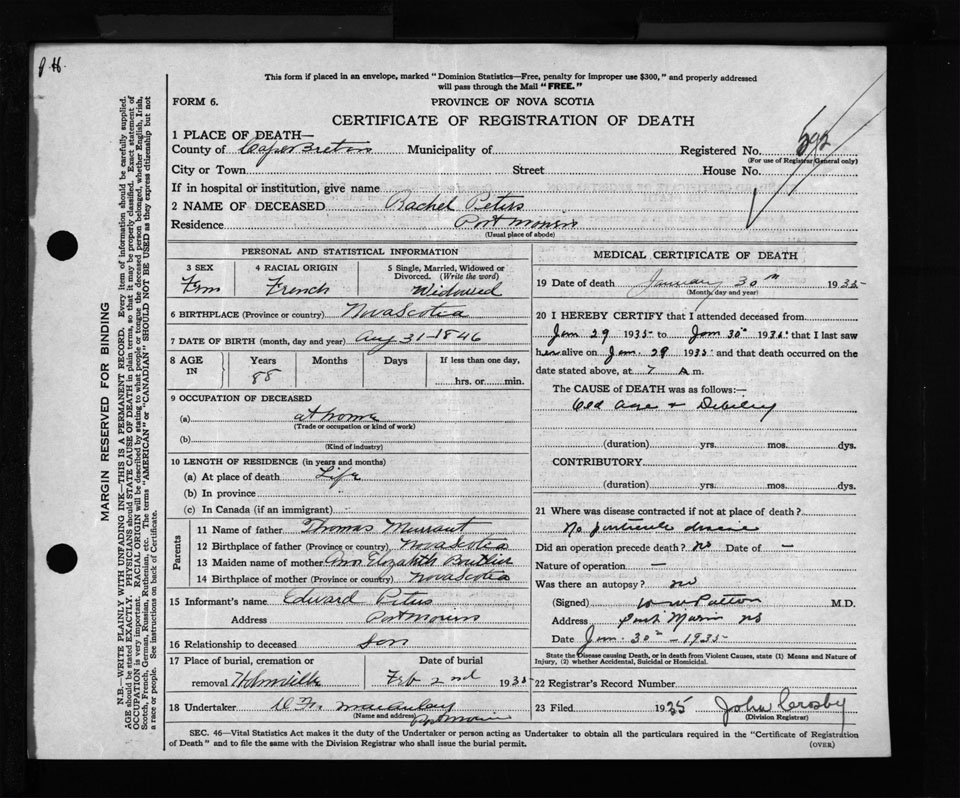 P H.
This form if placed in an envelope, marked "Dominion Statistics—Free, penalty for improper use $300," and properly addressed
will pass through the Mail "FREE."
FORM 6.
PROVINCE OF NOVA SCOTIA
CERTIFICATE OF REGISTRATION OF DEATH
1 PLACE OF DEATH—
County of Cape Breton Municipality of Registered No. 592
(For use of Registrar General only)
City or Town Street House No.
If in hospital or institution, give name
2 NAME OF DECEASED Rachel Peters
Residence Port Morien
(Usual place of abode)
MARGIN RESERVED FOR BINDING
N.B.—WRITE PLAINLY WITH UNFADING INK—THIS IS A PERMANENT RECORD. Every item of information should be carefully supplied.
AGE should be stated EXACTLY. PHYSICIANS should STATE CAUSE OF DEATH in plain terms, so that it may be properly classified. Exact statement of
OCCUPATION is very important. RACIAL ORIGIN will be described by stating to what people or tongue the deceased person belonged, whether English, Irish,
Scotch, French, German, Russian, Ruthenian, etc. The terms "AMERICAN" or "CANADIAN" SHOULD NOT BE USED as they express citizenship but not
a race or people. See instructions on back of Certificate.
PERSONAL AND STATISTICAL INFORMATION
3 SEX
Fem
4 RACIAL ORIGIN
French
5 Single, Married, Widowed or
Divorced. (Write the word)
Widowed
6 BIRTHPLACE (Province or country) Nova Scotia
7 DATE OF BIRTH (month, day and year) Aug 31-1846
8 AGE
IN
Years
88
Months
Days
If less than one day.
hrs. or min.
9 OCCUPATION OF DECEASED
(a) at home
(Trade or occupation or kind of work)
(b)
(Kind of industry)
10 LENGTH OF RESIDENCE (in years and months)
(a) At place of death Life
(b) In province
(c) In Canada (if an immigrant)
Parents
11 Name of father Thomas
12 Birthplace of father (Province or country) Nova Scotia
13 Maiden name of mother Ann Elizabeth
14 Birthplace of mother (Province or country) Nova Scotia
15 Informant's name Edward Peters
Address Port Morien
16 Relationship to deceased Son
17 Place of burial, cremation or
removal Homeville
Date of burial
Feb 2nd 1935
18 Undertaker
(Name and address) Port Morien
MEDICAL CERTIFICATE OF DEATH
19 Date of death January 30th 1935
(Month, day and year)
20 I HEREBY CERTIFY that I attended deceased from
Jan 29 1935 to Jan 30th 1935 that I last saw
her alive on Jan. 29 1935 and that death occurred on the
date stated above, at 7 A m.
The CAUSE of DEATH was as follows:—
Old age & Debility
(duration) yrs. mos. dys.
CONTRIBUTORY
(duration) yrs. mos. dys.
21 Where was disease contracted if not at place of death?
No particular disease
Did an operation precede death? no Date of —
Nature of operation —
Was there an autopsy? no
(Signed) M.D.
Address Port Morien NS
Date Jan. 30th - 1935
State the Disease causing Death, or in death from Violent Causes, state (1) Means and Nature of
Injury, (2) whether Accidental, Suicidal or Homicidal.
22 Registrar's Record Number
23 Filed 1935 John Crosby
(Division Registrar)
SEC. 46—Vital Statistics Act makes it the duty of the Undertaker or person acting as Undertaker to obtain all the particulars required in the "Certificate of Registration
of Death" and to file the same with the Division Registrar who shall issue the burial permit.
(OVER)